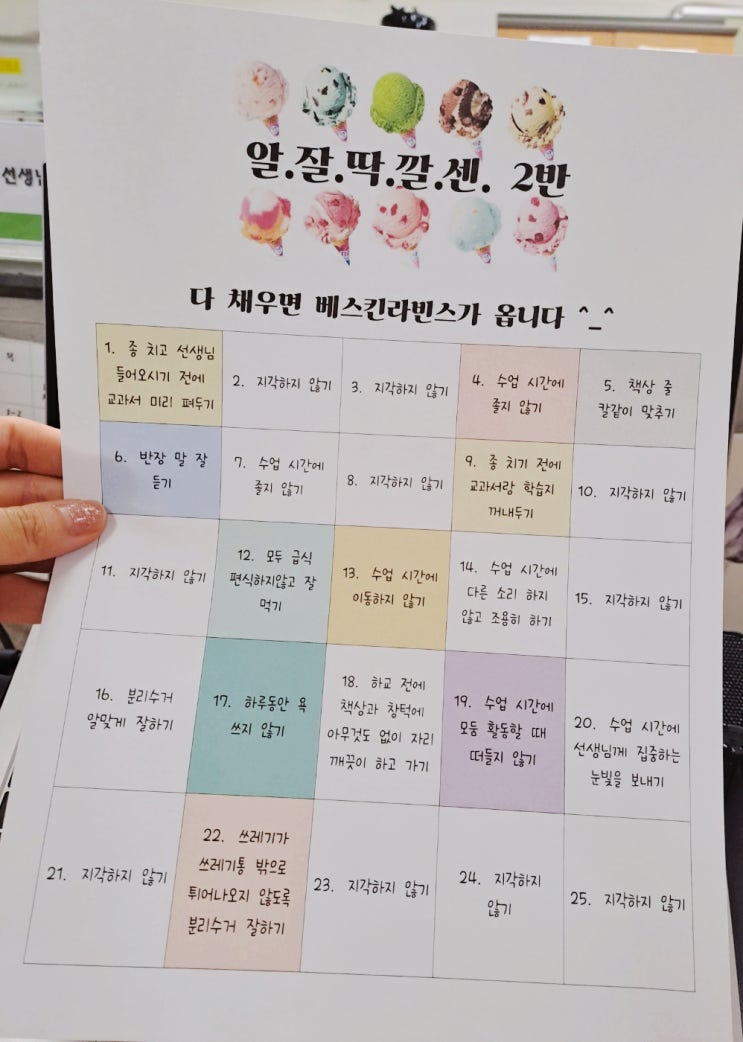 알.잘.딱.깔.센. 2반
다 채우면 베스킨라빈스가 옵니다 ^_^
1. 종 치고 선생님
들어오시기 전에
교과서 미리 펴두기
2. 지각하지 않기
3. 지각하지 않기
4. 수업 시간에
졸지 않기
5. 책상 줄
칼같이 맞추기
6. 반장 말 잘
듣기
7. 수업 시간에
졸지 않기
8. 지각하지 않기
9. 종 치기 전에
교과서랑 학습지
꺼내두기
10. 지각하지 않기
11. 지각하지 않기
12. 모두 급식
편식하지않고 잘
먹기
13. 수업 시간에
이동하지 않기
14. 수업 시간에
다른 소리 하지
않고 조용히 하기
15. 지각하지 않기
16. 분리수거
알맞게 잘하기
17. 하루동안 욕
쓰지 않기
18. 하교 전에
책상과 창턱에
아무것도 없이 자리
깨끗이 하고 가기
19. 수업 시간에
모둠 활동할 때
떠들지 않기
20. 수업 시간에
선생님께 집중하는
눈빛을 보내기
21. 지각하지 않기
22. 쓰레기가
쓰레기통 밖으로
튀어나오지 않도록
분리수거 잘하기
23. 지각하지 않기
24. 지각하지
않기
25. 지각하지 않기